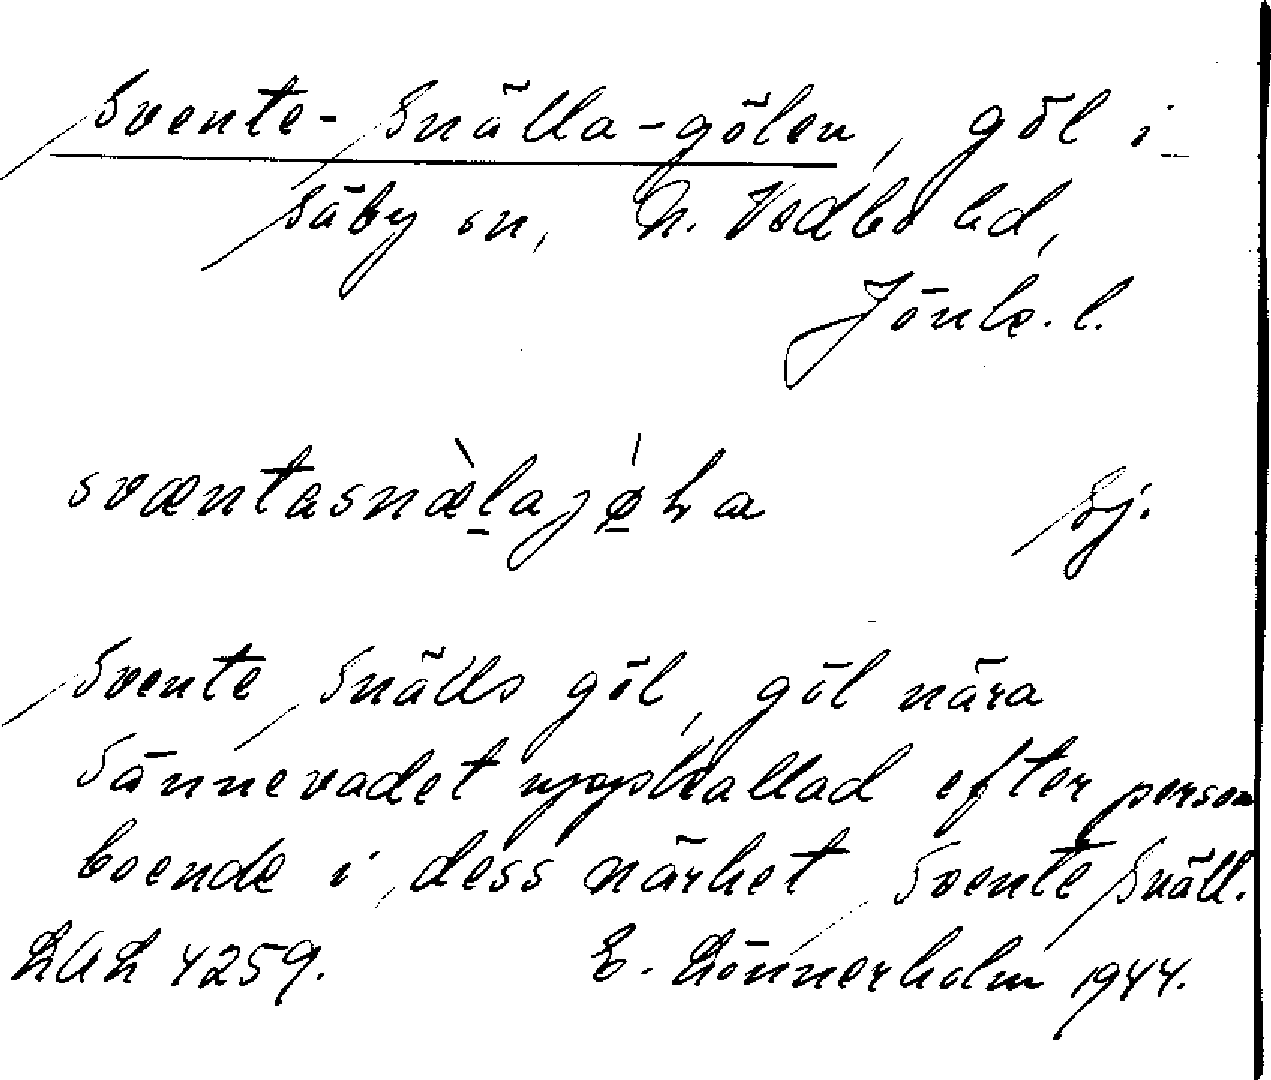 Svente-Snälla-gölen, göl i
Säby sn, N. Vedbo hd,
Jönk. l.
sventasnæ̀lajøɫa Sj.
Svente Snälls göl, göl nära
Sännevadet uppkallad efter person
boende i dess närhet Svente Snäll.
LUL 4259. E. Lönnerholm 1944.